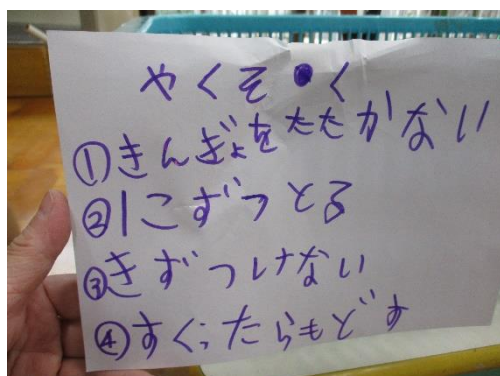 やくそく
①きんぎょをたたかない
②1こずつとる
③きずつけない
④すくったらもどす